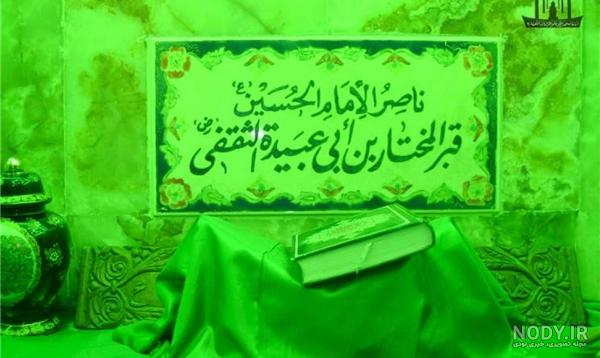 ناصِرُ الإمَامِ الحُسَيْنِ ع
قبر المختار بن أبي عبيدة الثقفي رض
NODY.IR
مجله تصویری، خبری نودی